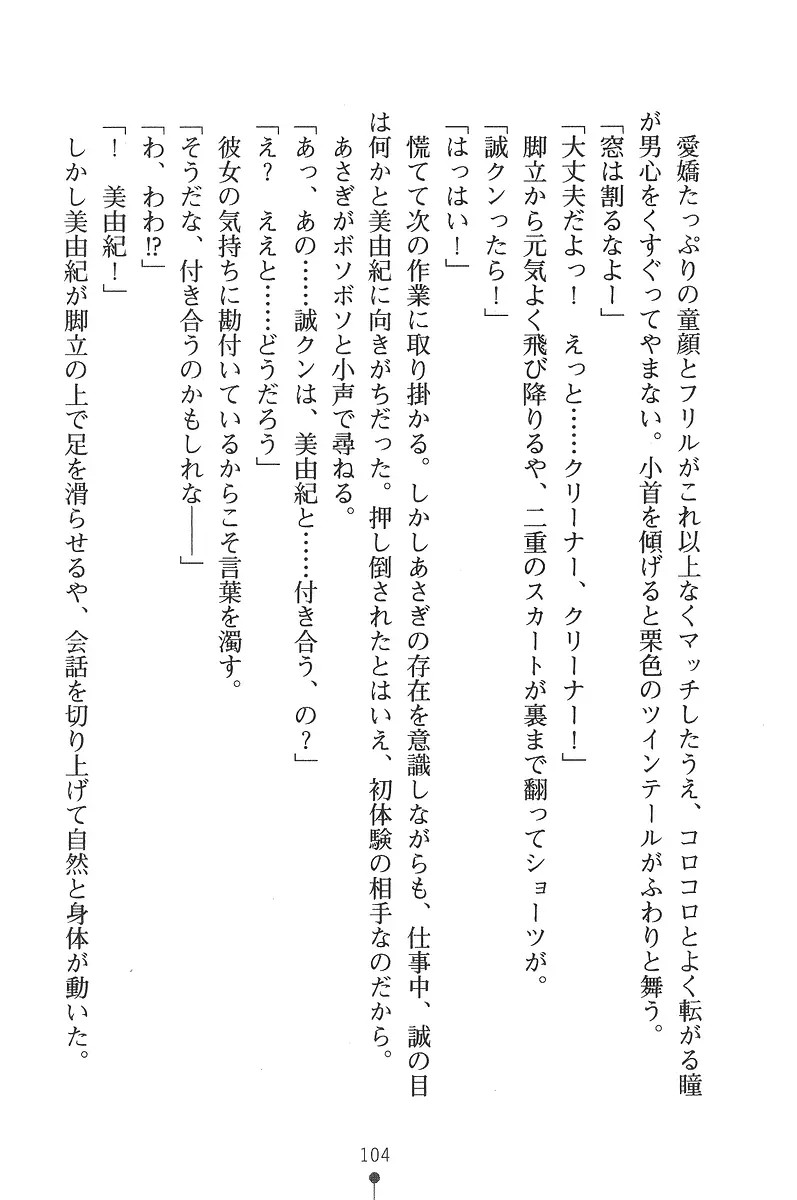 愛嬌たっぷりの童顔とフリルがこれ以上なくマッチしたうえ、コロコロとよく転がる瞳
が男心をくすぐってやまない。小首を傾げると栗色のツインテールがふわりと舞う。
「窓は割るなよー」
「大丈夫だよっ！　えっと……クリーナー、クリーナー！」
脚立から元気よく飛び降りるや、二重のスカートが裏まで翻ってショーツが。
「誠クンったら！」
「はっはい！」
慌てて次の作業に取り掛かる。しかしあさぎの存在を意識しながらも、仕事中、誠の目
は何かと美由紀に向きがちだった。押し倒されたとはいえ、初体験の相手なのだから。
あさぎがボソボソと小声で尋ねる。
「あっ、あの……誠クンは、美由紀と……付き合う、の？」
「え？　ええと……どうだろう」
彼女の気持ちに勘付いているからこそ言葉を濁す。
「そうだな、付き合うのかもしれな――」
「わ、わわ!?」
「！　美由紀！」
しかし美由紀が脚立の上で足を滑らせるや、会話を切り上げて自然と身体が動いた。
104